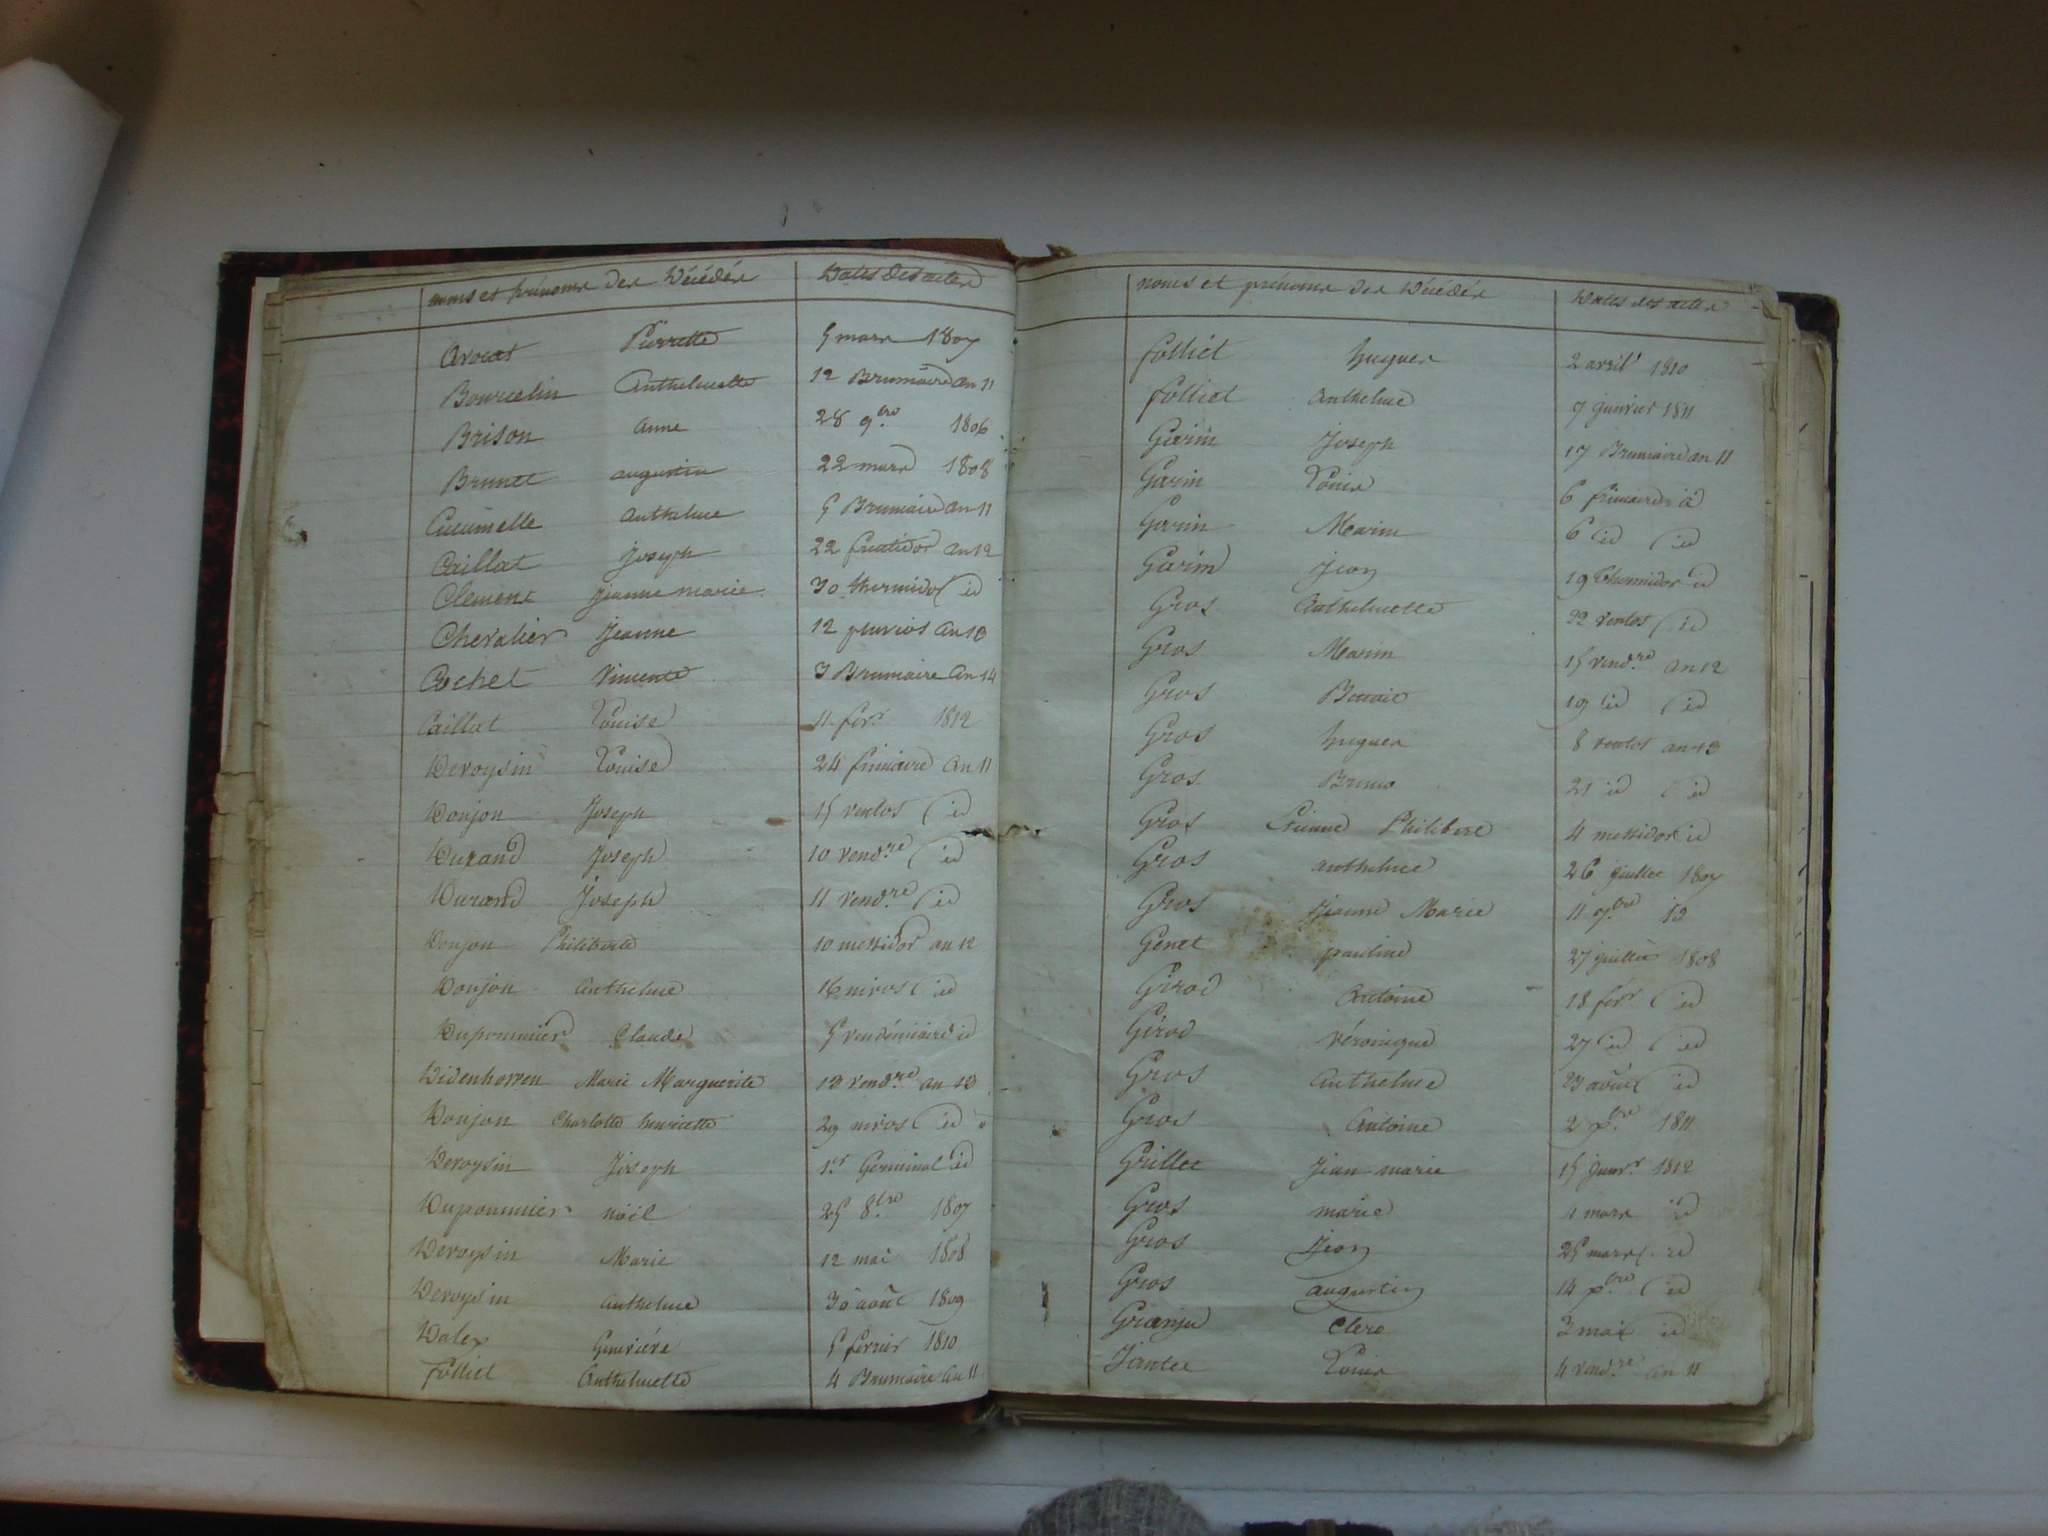 noms et prénoms des Décédés Dates des actes
Avocat Pierrette 5 mars 1807
Bourcelin Anthelmette 12 Brumaire an 11
Brison anne 28 9.bre 1806
Brunet augustin 22 mars 1808
anthelme 5 Brumaire an 11
Caillat joseph 22 fructidor an 12
Clement jeanne marie 30 thermidor id
Chevalier Jeanne 12 pluvios an 13
Cochet Vincente 3 Brumaire an 14
Caillat Louise 11 fevr 1812
Devoysin Louise 24 frimaire an 11
Donjon Joseph 15 ventos id
Durand Joseph 10 vend.re id
Durand Joseph 11 vend.re id
Donjon Philiberte 10 messidor an 12
Donjon anthelme 16 nivos id
Duponnier Claude 5 vendémiaire id
Didenhoven Marie Marguerite 13 vend.re an 13
Donjon Charlotte henriette 29 nivos id
Devoysin Joseph 1.r Germinal id
Duponnier noël 25 8.bre 1807
Devoysin Marie 12 mai 1808
Devoysin anthelme 30 août 1809
Dalex Geneviéve 5 fevrier 1810
folliet Anthelmette 4 Brumaire an 11
noms et prénoms des Décédés Dates des actes
folliet hugues 2 avril 1810
folliet anthelme 7 janvier 1811
Garin Joseph 17 Brumaire an 11
Garin Louis 6 frimaire id
Garin Marin 6 id id
Garin Jean 19 thermidor id
Gros Anthelmette 22 ventos id
Gros Marin 15 vend.re an 12
Gros Benoit 19 id id
Gros hugues 8 ventos an 13
Gros Bruno 21 id id
Gros Etienne Philibert 4 messidor id
Gros anthelme 26 juillet 1807
Gros Jeanne Marie 11 7.bre id
Genet pauline 27 juillet 1808
Girod Antoine 18 fevr id
Girod Véronique 27 id id
Gros Anthelme 23 août id
Gros Antoine 1811
Grillet Jean marie 15 janvr. 1812
Gros marie 4 mars id
Gros Jean 25 mars id
Gros augustin 14 id
Granju Clere 3 mai id
Jantet Louis 4 vend.re an 11